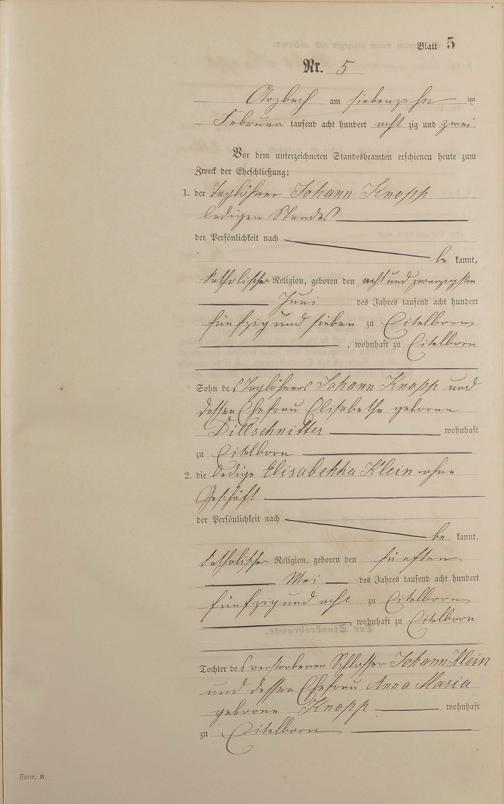 Blatt 5
Nr. 5
Arzbach am siebenzehn ten
Februar tausend acht hundert acht zig und zwei
Vor dem unterzeichneten Standesbeamten erschienen heute zum
Zweck der Eheschließung:
1. der Taglöhner Johann Knopp
ledigen Standes
der Persönlichkeit nach
be kannt,
katholischer Religion, geboren den acht und zwanzigsten
Juni des Jahres tausend acht hundert
fünfzig und sieben zu Eitelborn
, wohnhaft zu Eitelborn
Sohn des Taglöhners Johann Knopp und
dessen Ehefrau Elisabetha geborene
Dillschnitter wohnhaft
zu Eitelborn
2. die ledige Elisabetha Klein ohne
Geschäft
der Persönlichkeit nach
be kannt,
katholischer Religion, geboren den fünften
Mai des Jahres tausend acht hundert
fünfzig und acht zu Eitelborn
, wohnhaft zu Eitelborn
Tochter des verstorbenen Schlosser Johann Klein
und dessen Ehefrau Anna Maria
geborene Knopp wohnhaft
zu Eitelborn
Form. B.